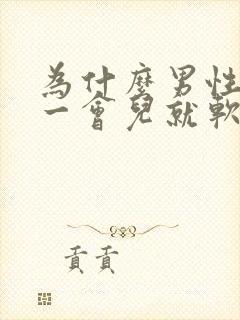 為什麼男性
一會兒就軟
貢貢